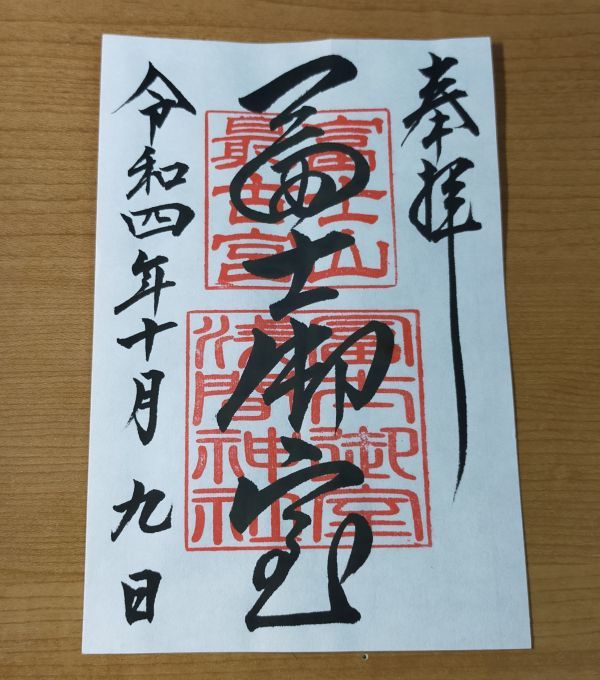 奉拝
冨士御室
富士山
最古宮
冨士御室
浅間神社
令和四年十月九日